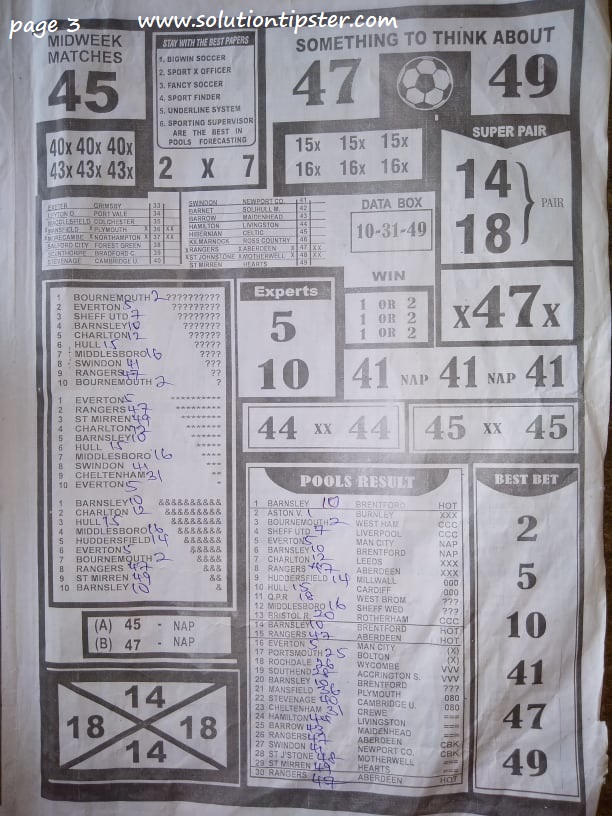 page 3 www.solutiontipster.com
MIDWEEK
MATCHES
45
STAY WITH THE BEST PAPERS
1. BIGWIN SOCCER
2. SPORT X OFFICER
3. FANCY SOCCER
4. SPORT FINDER
5. UNDERLINE SYSTEM
6. SPORTING SUPERVISOR
ARE THE BEST IN
POOLS FORECASTING
2 X 7
SOMETHING TO THINK ABOUT
47 49
40x 40x 40x
43x 43x 43x
15x 15x 15x
16x 16x 16x
SUPER PAIR
14
18
PAIR
EXETER GRIMSBY 33
LEYTON O. PORT VALE 34
COLCHESTER 35
MANSFIELD PLYMOUTH 36 XX
MORECAMBE NORTHAMPTON X 37 XX
SALFORD CITY FOREST GREEN 38
SCUNTHORPE BRADFORD C. 39
STEVENAGE CAMBRIDGE U. 40
SWINDON NEWPORT CO. 41
BARNET SOLIHULL M. 42
BARROW MAIDENHEAD 43
HAMILTON LIVINGSTON 44
HIBERNIAN CELTIC 45
KILMARNOCK ROSS COUNTRY 46
X RANGERS X ABERDEEN X 47 XX
X ST JOHNSTONE X MOTHERWELL X 48 XX
ST MIRREN HEARTS 49
DATA BOX
10-31-49
X47X
WIN
1 OR 2
1 OR 2
1 OR 2
Experts
5
10
41 NAP 41 NAP 41
44 XX 44
45 XX 45
1 BOURNEMOUTH 2 ??????????
2 EVERTON 5 ?????????
3 SHEFF UTD 7 ????????
4 BARNSLEY 10 ???????
5 CHARLTON 12 ??????
6 HULL 15 ?????
7 MIDDLESBORO 16 ????
8 SWINDON 41 ???
9 RANGERS 47 ??
10 BOURNEMOUTH 2 ?
1 EVERTON 5 **********
2 RANGERS 47 *********
3 ST MIRREN 49 ********
4 CHARLTON 12 *******
5 BARNSLEY 10 ******
6 HULL 15 *****
7 MIDDLESBORO 16 ****
8 SWINDON 41 ***
9 CHELTENHAM 21 **
10 EVERTON 5 *
1 BARNSLEY 10 &&&&&&&&&&
2 CHARLTON 12 &&&&&&&&&
3 HULL 15 &&&&&&&&
4 MIDDLESBORO 16 &&&&&&&
5 HUDDERSFIELD 14 &&&&&&
6 EVERTON 5 &&&&&
7 BOURNEMOUTH 2 &&&&
8 RANGERS 47 &&&
9 ST MIRREN 49 &&
10 BARNSLEY 10 &
(A) 45 - NAP
(B) 47 - NAP
14
18 18
14
POOLS RESULT
1 BARNSLEY 10 BRENTFORD HOT
2 ASTON V. 1 BURNLEY XXX
3 BOURNEMOUTH 2 WEST HAM CCC
4 SHEFF UTD 7 LIVERPOOL CCC
5 EVERTON 5 MAN CITY NAP
6 BARNSLEY 10 BRENTFORD NAP
7 CHARLTON 12 LEEDS XXX
8 RANGERS 47 ABERDEEN XXX
9 HUDDERSFIELD 14 MILLWALL 000
10 HULL 15 CARDIFF 000
11 Q.P.R 18 WEST BROM ???
12 MIDDLESBORO 16 SHEFF WED ???
13 BRISTOL R. 20 ROTHERHAM CCC
14 BARNSLEY 10 BRENTFORD HOT
15 RANGERS 47 ABERDEEN HOT
16 EVERTON 5 MAN CITY (X)
17 PORTSMOUTH 25 BOLTON (X)
18 ROCHDALE WYCOMBE VVV
19 SOUTHEND ACCRINGTON S. VVV
20 BARNSLEY BRENTFORD VVV
21 MANSFIELD PLYMOUTH ???
22 STEVENAGE CAMBRIDGE U. 080
23 CHELTENHAM CREWE 080
24 HAMILTON LIVINGSTON ===
25 BARROW MAIDENHEAD ===
26 RANGERS ABERDEEN ===
27 SWINDON NEWPORT CO. CBK
28 ST J'STONE MOTHERWELL CBK
29 ST MIRREN HEARTS ===
30 RANGERS 47 ABERDEEN HOT
BEST BET
2
5
10
41
47
49